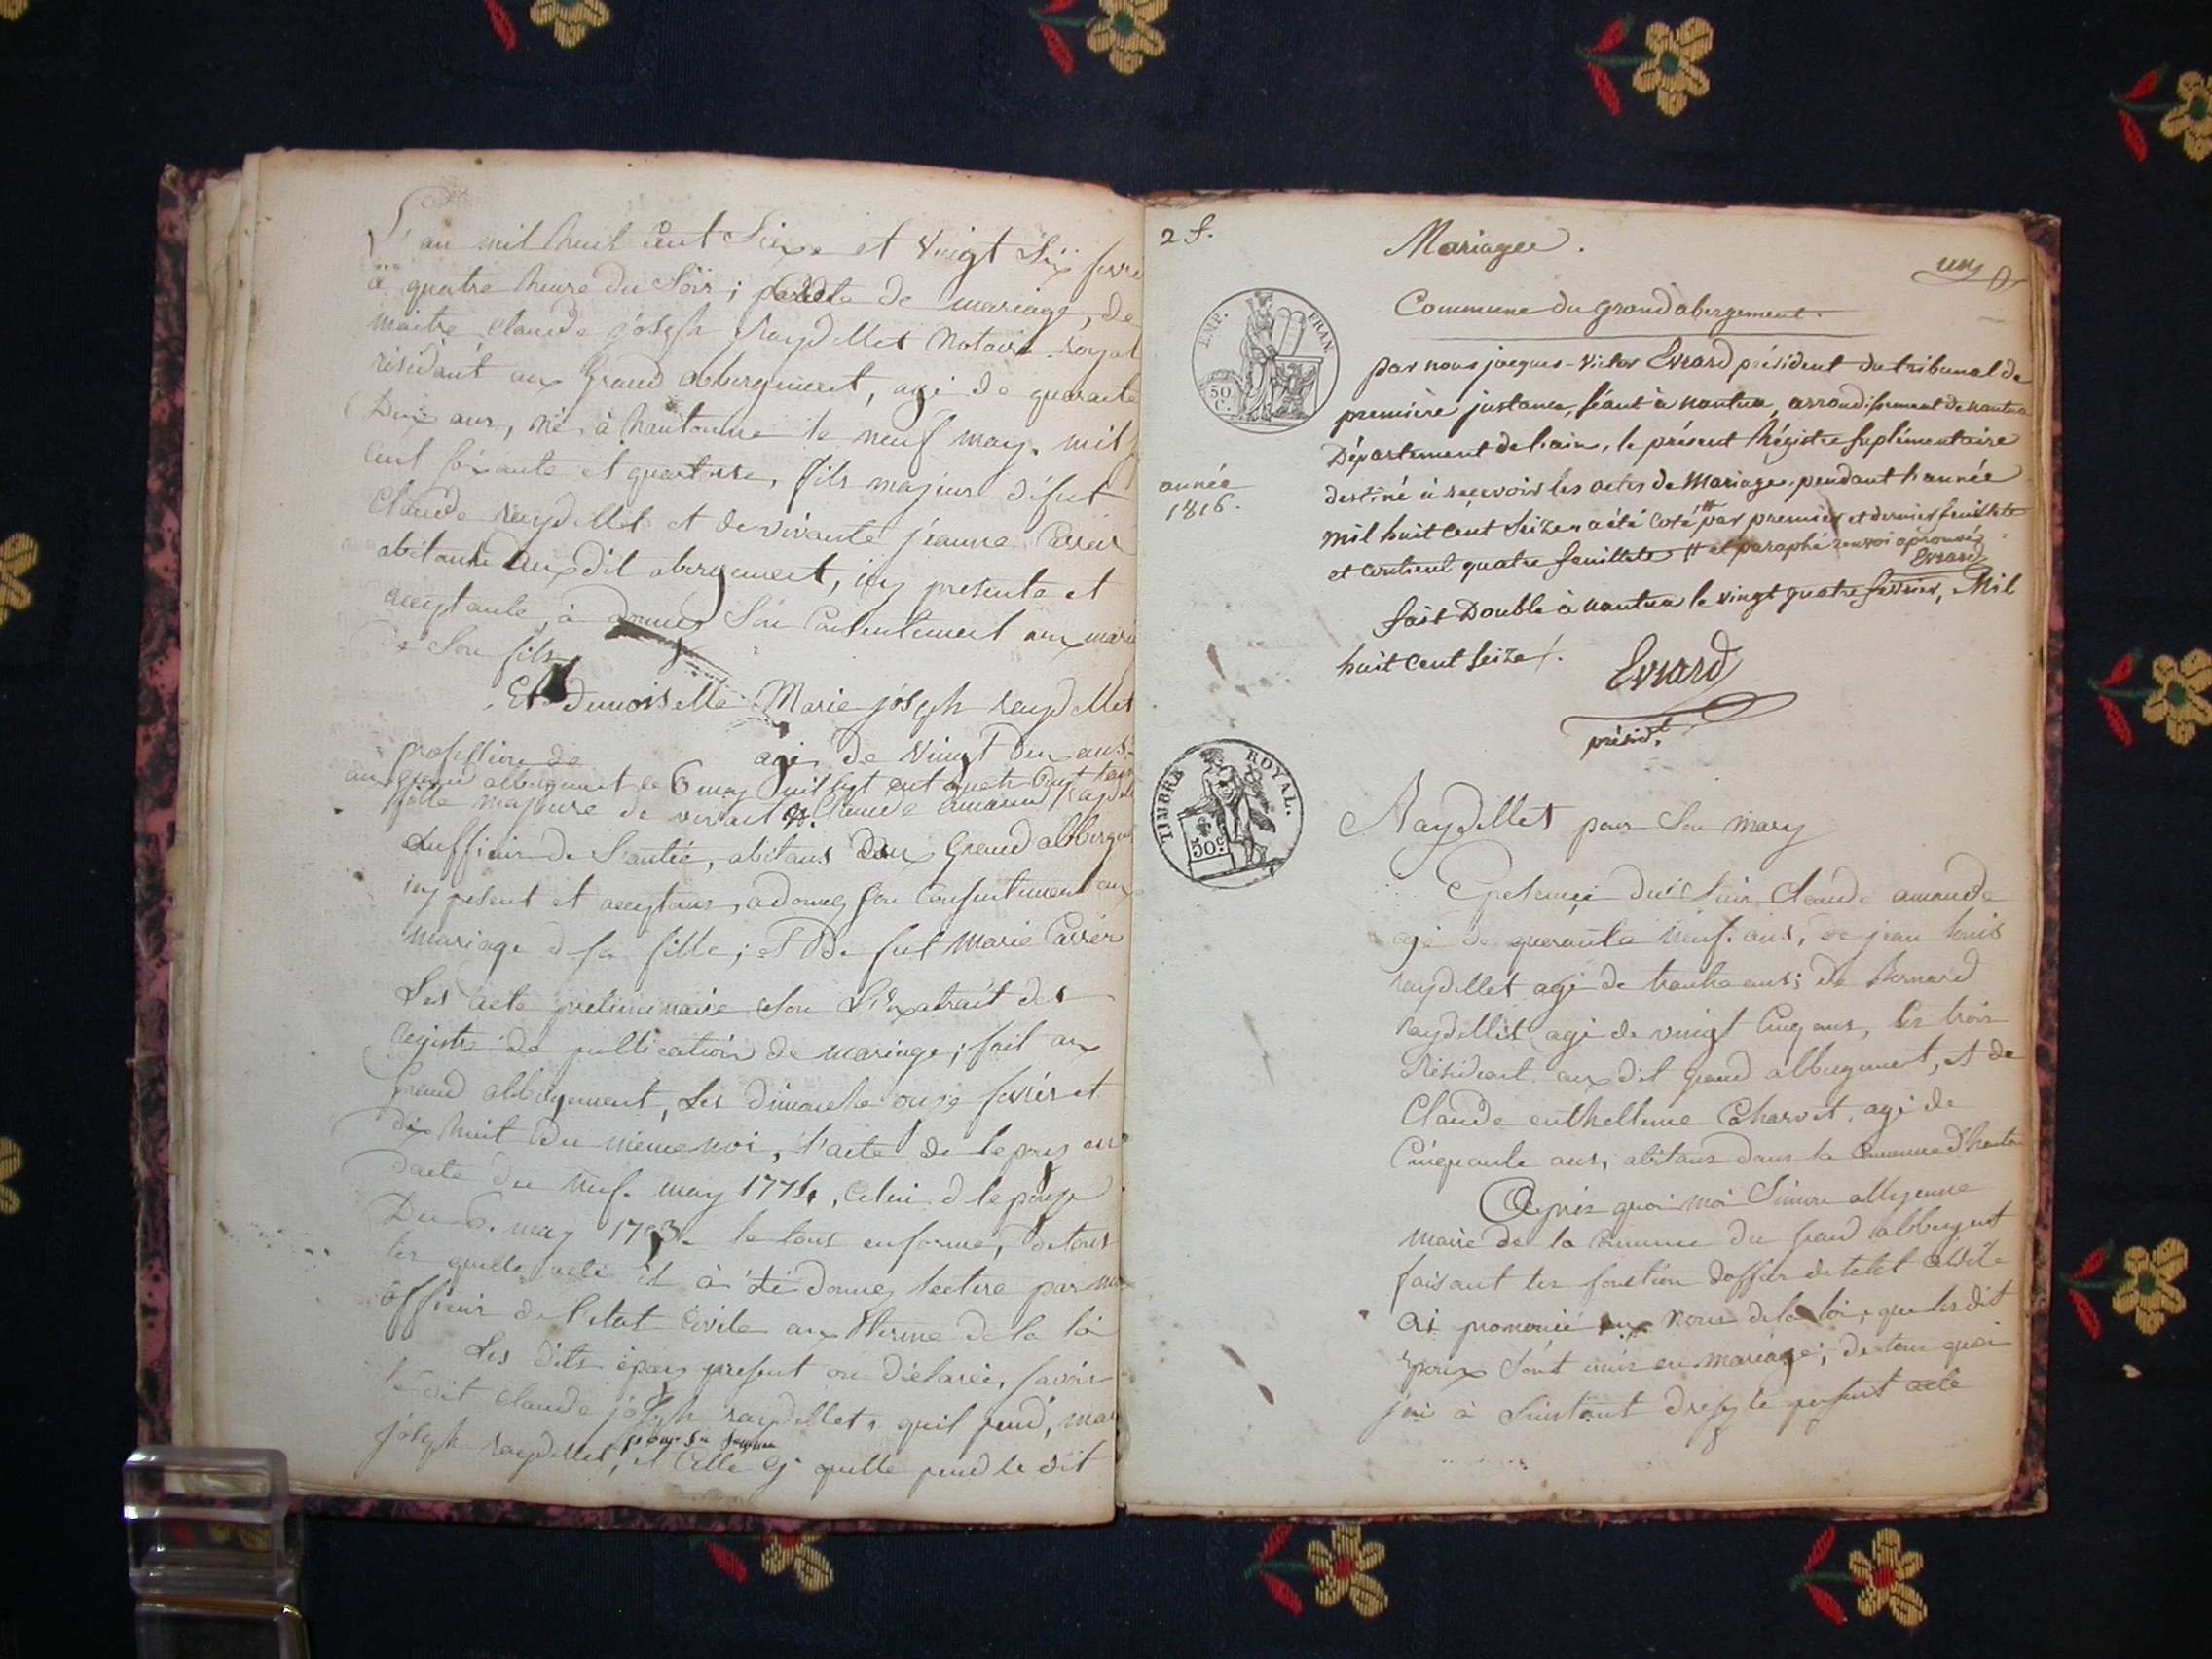 L'an mil huit Cent Seize et Vingt Six fevri
à quatre heure du Soir; pardte de mariage, de
maitre claude joseph Raydellet Notaire royal
résidant au Grand abbergement, agé de quarante
Deux ans, né à hautonne le neuf may mil
Cent soixante et quatorze, fils majeur défut
Claude Raydellet et de vivante jeanne Carrier
abitante au dit abergement, icy presente et
acceptante, à donné Son Consentement au maria
de Son fils
Et demoiselle Marie joseph raydellet
profession de agé de Vingt Deux ans
au grand abbergement le 6 may mil sept cent quatre vingt treize
fille majeure de vivant Sr. Claude amand rayde
officier de Santé, abitans au Grand abberge
icy present et acceptans, a donné Son Consentement au
mariage d sa fille; et De fut Marie Carrier
Les acte preliminaire Son L'Extrait des
registre de publication de mariage; fait au
Grand abbergement, Les dimanche onze fevrier et
dix huit du même moi, l'acte de lepoux en
datte du Neuf may 1774, Celui d lepouse
Du 6. may 1793. le tous enforme, de tous
les quelle acte il à été donné lecture par moi
officier de l'etat Civile aux therme de la loi
Les dits époux present on déclaréé, savoir
le dit Claude joseph raydellet, quil prend, mari
joseph raydellet, pour sa femme et Celle cy quelle prend le dit
2 f.
Mariages.
un
Commune du grand abergement.
EMP. FRAN.
50 C.
par nous jacques-victor Evrard président du tribunal de
première justance, séant à nantua, arrondissement de nantua
Département de l'ain, le présent Régistre suplémentaire
destiné à recevoir les actes de Mariage pendant l'année
année
1816.
mil huit Cent Seize, a été Coté # par premier et dernier feuillets
et Contient quatre feuillets # et paraphé renvoi aprouvé
Evrard
fait Double à nantua le vingt quatre fevrier, Mil
huit Cent Seize.
Evrard
présidt.
TIMBRE ROYAL.
50 c
Raydellet pour Son mary
En presence du Sieur Claude amande
agé de quarante neuf ans, de jean louis
raydellet agé de trante ans; de Bernard
raydellet agé de vingt Cinq ans, les trois
Résidant au dit grand abbergement, et de
Claude enthellme Charvet agé de
Cinquante ans, abitans dans la Commune d'hauton
Apres quoi moi Simon allyenne
maire de la Commune du grand abbergent
faisant les fonction doffier de letet Civile
ai prononcé au Nom de la loi, que les dit
epoux sont unis en mariage; de tous quoi
j'ai à Linstant dressé le present acte